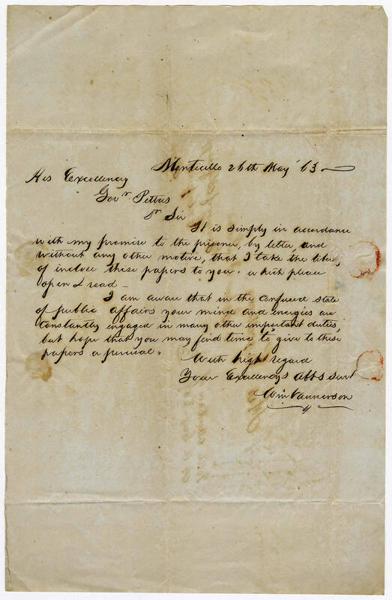 Monticello 26th May 63
His Excellency
Govr Pettus
Dr Sir
It is simply in accordance
with my promise to the prisoner, by letter, and
without any other motive, that I take the
of inclose these papers to you. which please
open & read
I am aware that in the confused state
of public affairs your mind and energies are
constantly engaged in many other important duties,
but hope that you may find time to give to these
papers a perusal.
With high regard
Your Excellencys obt
Wm Vannerson